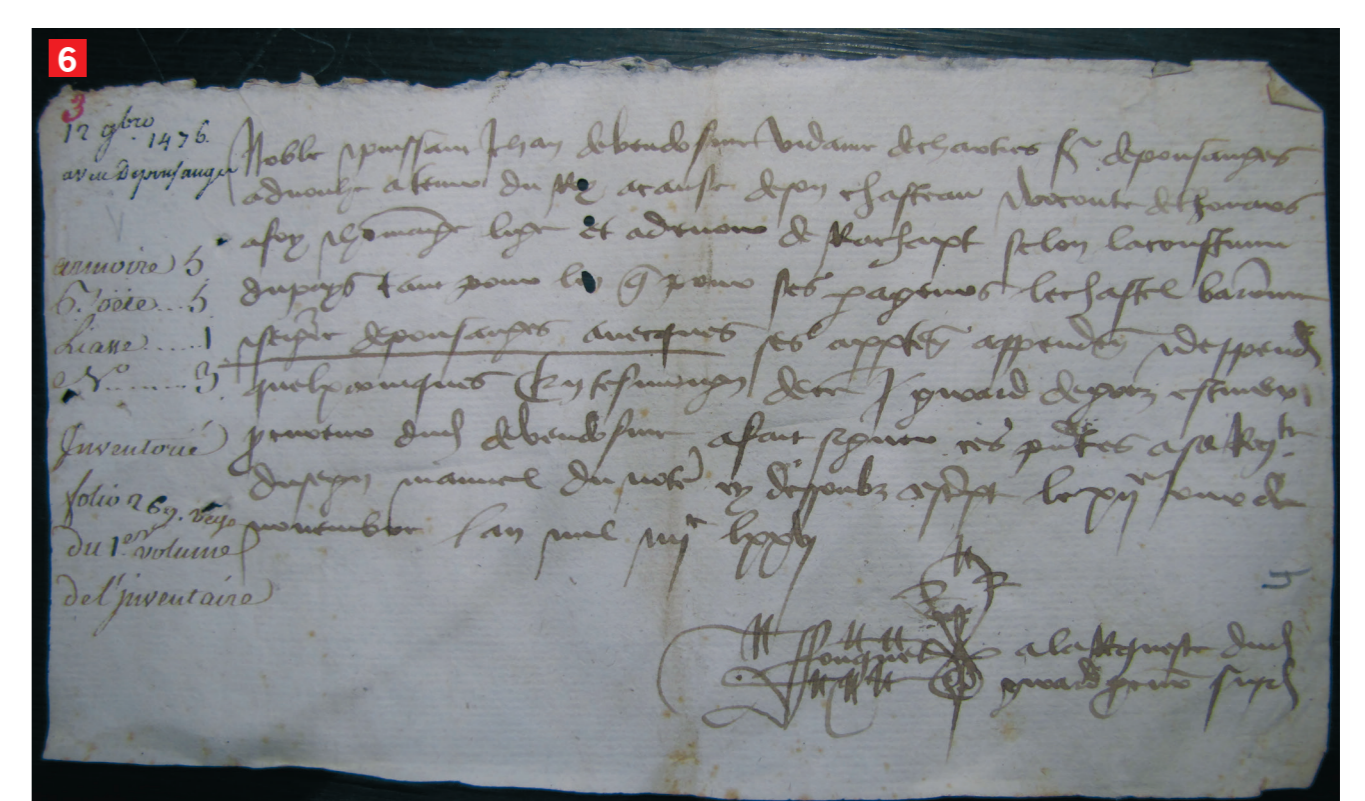 6
3
12 9bre 1476.
aveu de pousauges
armoire 5
Liasse 1
No 3
Inventorié
folio 269. verso
du 1er volume
de l'inventaire
Noble puissant Jehan de vendosme vidame de chartres sr de pousauges
advouhe a tenir du Roy a cause de son chasteau viconte de thouars
a foy homaige lige et a devoir de Rachapt selon la coustume
du pays tant pour luy que pour ses parageurs le chastel baronnie
de pousauges avecques ses appendences
quelxconques En tesmoign de ce
procureur dud de vendosme a fait signer ces presentes a sa Requeste
du seign manuel du notere cy dessoubz escript le xije jour de
novembre l'an mil iiijc lxxvj
Fouquet
a la Requeste dud
procureur susd